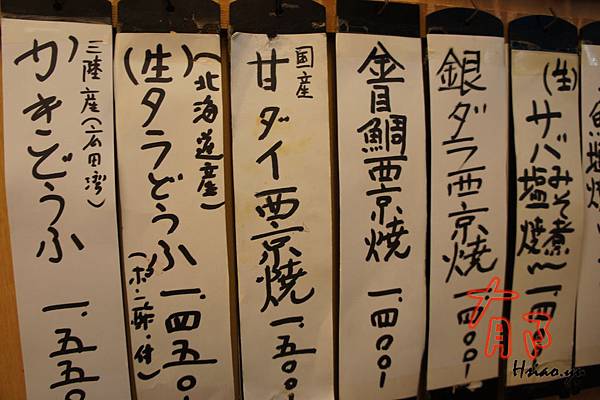 魚塩焼
(生)サバみそ煮
塩焼
一、四〇
銀ダラ西京焼 一、四〇〇ー
金目鯛西京焼 一、四〇〇ー
国産
甘ダイ西京焼 一、五〇〇ー
(北海道産)
(生)タラどうふ 一、四五〇ー
(ポン酢・付)
三陸産(広田湾)
かきどうふ 一、五五〇
Hsiao.yu